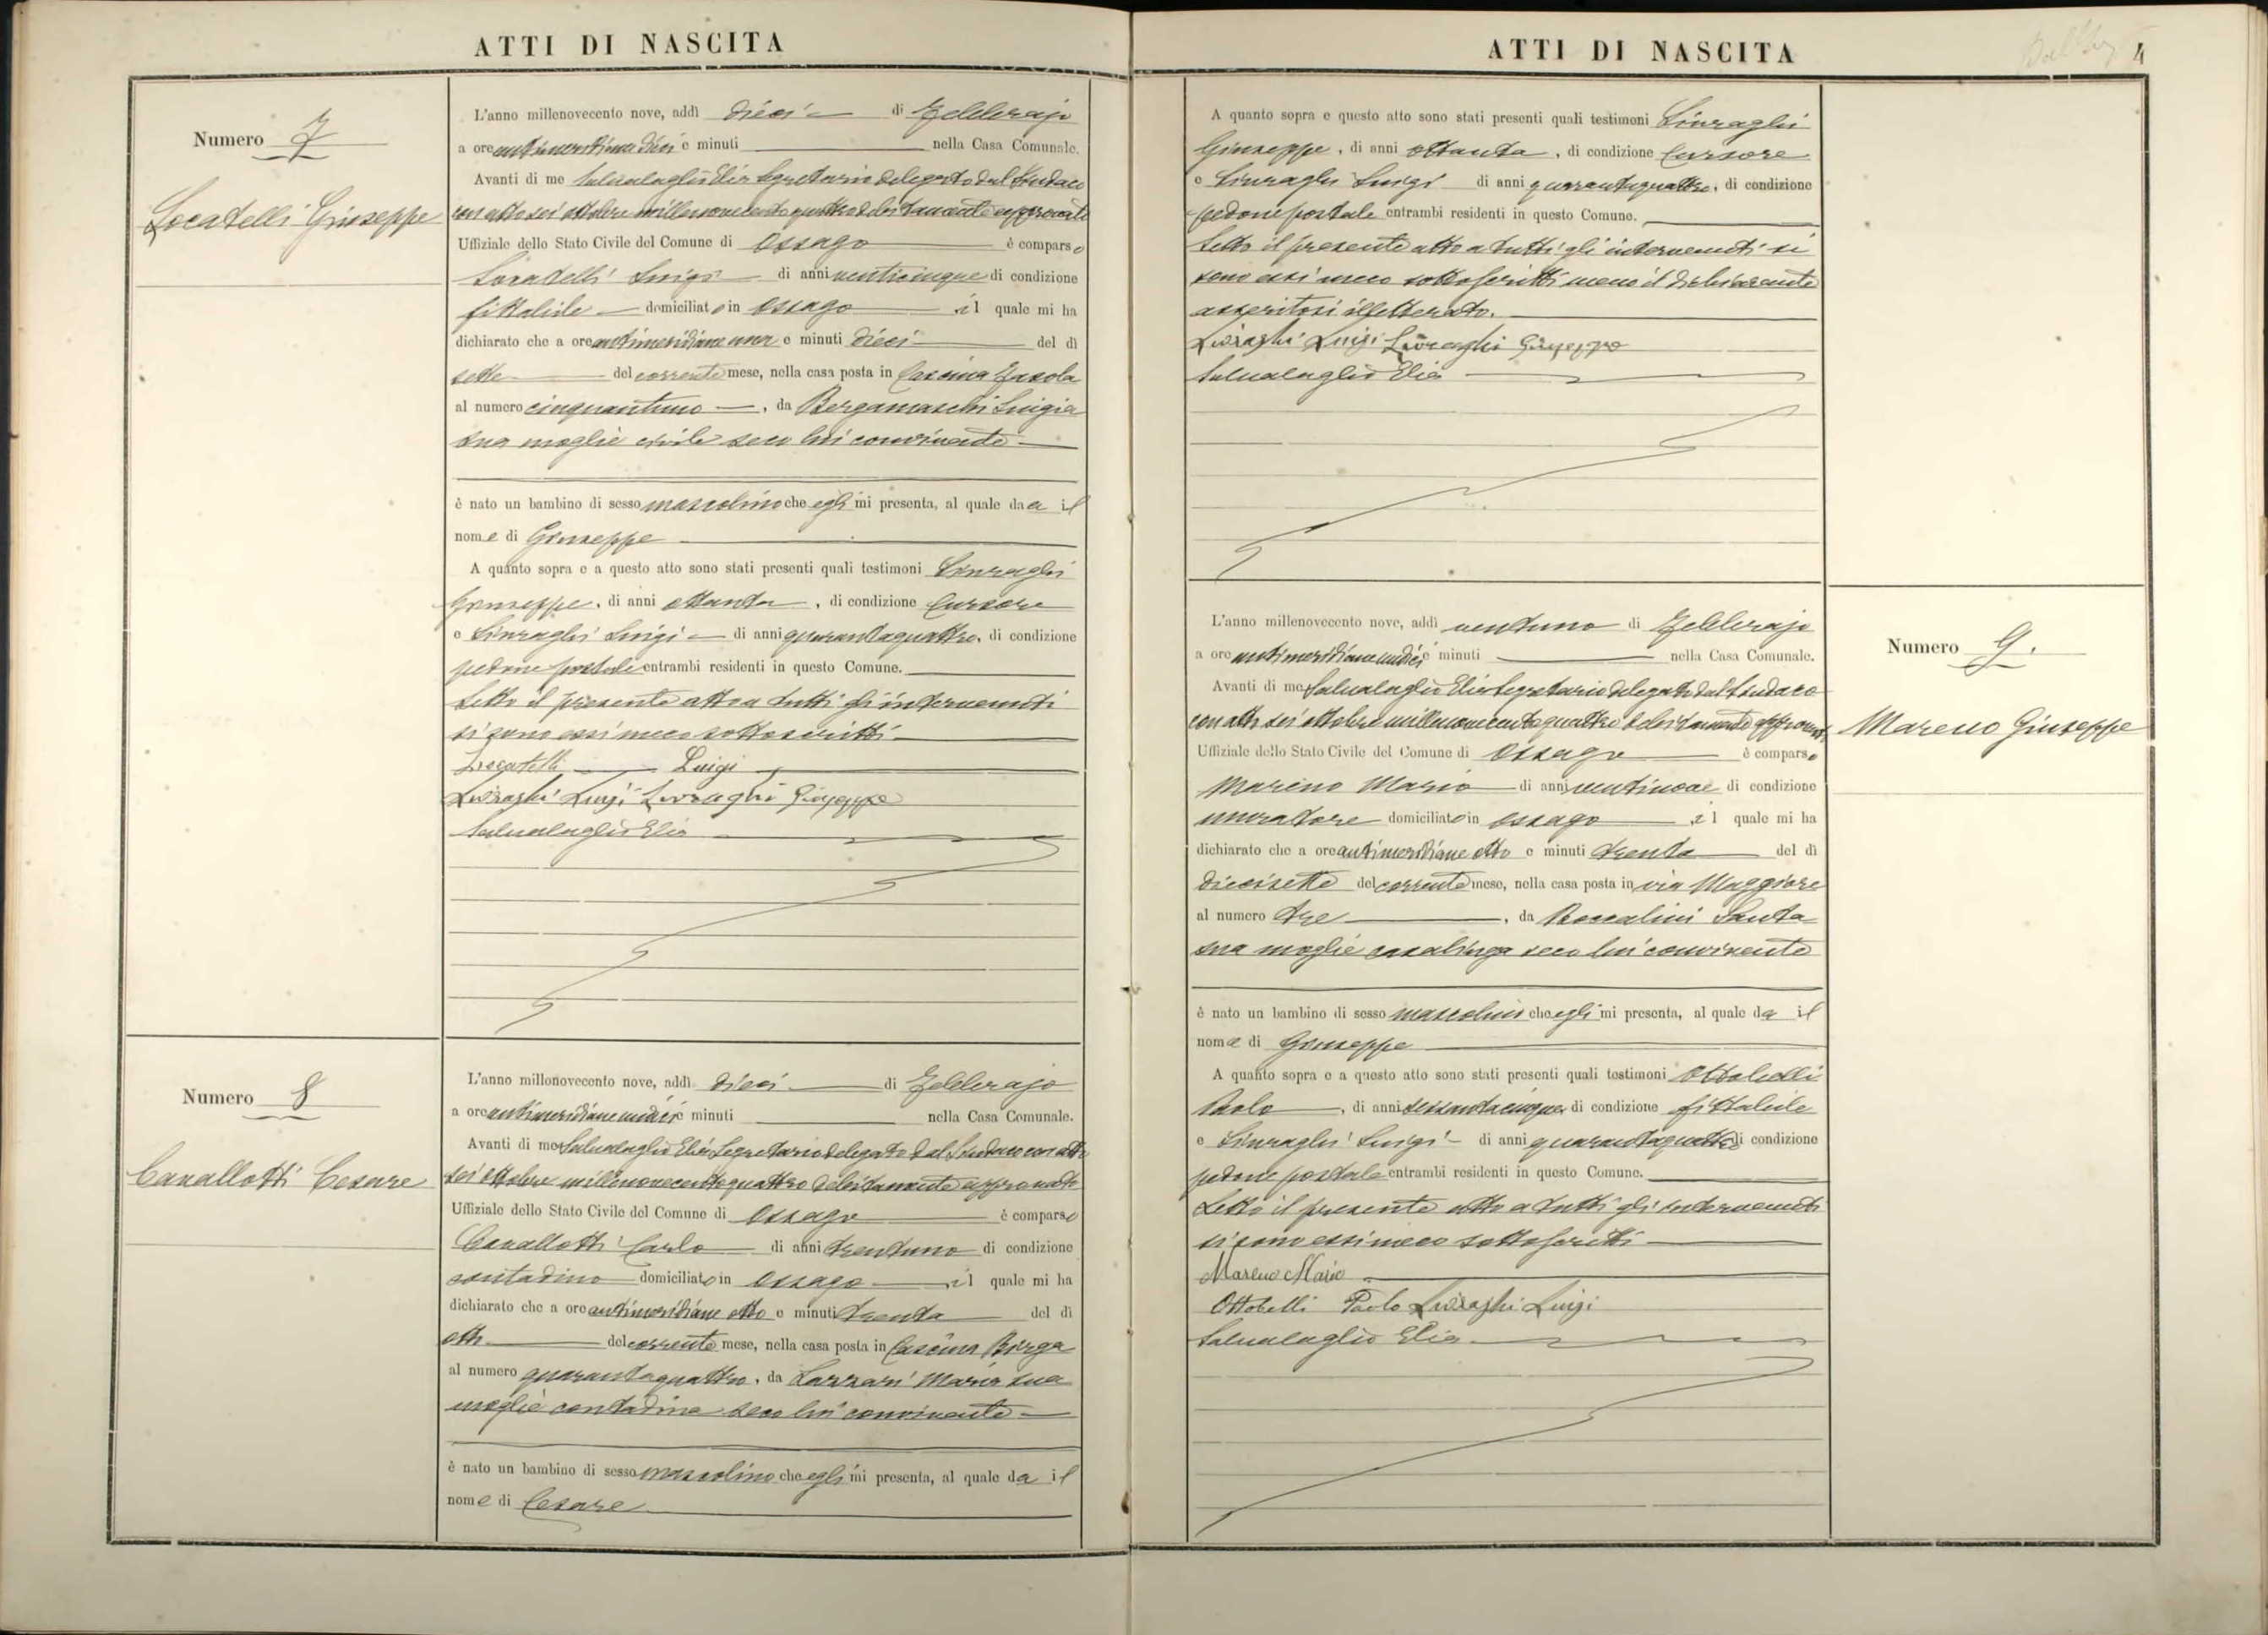 ATTI DI NASCITA
Numero 7
Locatelli Giuseppe
L'anno millenovecento nove, addì dieci di Febbrajo
a ore antimeridiane dieci e minuti nella Casa Comunale.
Avanti di me Salvalaglio Elia Segretario delegato dal Sindaco
con atto sei ottobre millenovecentoquattro debitamente approvato
Uffiziale dello Stato Civile del Comune di Ossago è comparso
Locatelli Luigi di anni venticinque di condizione
fittabile domiciliato in Ossago il quale mi ha
dichiarato che a ore antimeridiane una e minuti dieci del dì
sette del corrente mese, nella casa posta in Cascina Fasola
al numero cinquantuno, da Bergamaschi Luigia
sua moglie civile seco lui convivente
è nato un bambino di sesso mascolino che egli mi presenta, al quale da a il
nome di Giuseppe
A quanto sopra e a questo atto sono stati presenti quali testimoni Livraghi
Giuseppe, di anni ottanta, di condizione Cursore
e Livraghi Luigi di anni quarantaquattro, di condizione
pedone postale entrambi residenti in questo Comune.
Letto il presente atto a tutti gli intervenuti
si sono essi meco sottoscritti
Locatelli Luigi
Livraghi Luigi Livraghi Giuseppe
Salvalaglio Elia
Numero 8
Cavallotti Cesare
L'anno millenovecento nove, addì dieci di Febbrajo
a ore antimeridiane undici e minuti nella Casa Comunale.
Avanti di me Salvalaglio Elia Segretario delegato dal Sindaco con atto
sei ottobre millenovecentoquattro debitamente approvato
Uffiziale dello Stato Civile del Comune di Ossago è comparso
Cavallotti Carlo di anni trentuno di condizione
contadino domiciliato in Ossago il quale mi ha
dichiarato che a ore antimeridiane otto e minuti trenta del dì
otto del corrente mese, nella casa posta in Cascina Birga
al numero quarantaquattro, da Lazzari Maria sua
moglie contadina seco lui convivente
è nato un bambino di sesso mascolino che egli mi presenta, al quale da il
nome di Cesare
ATTI DI NASCITA
4
A quanto sopra e questo atto sono stati presenti quali testimoni Livraghi
Giuseppe, di anni ottanta, di condizione Cursore
e Livraghi Luigi di anni quarantaquattro, di condizione
pedone postale entrambi residenti in questo Comune.
Letto il presente atto a tutti gli intervenuti si
sono essi meco sottoscritti meno il dichiarante
asseritosi illetterato.
Livraghi Luigi Livraghi Giuseppe
Salvalaglio Elia
Numero 9.
Mareno Giuseppe
L'anno millenovecento nove, addì ventuno di Febbrajo
a ore antimeridiane undici e minuti nella Casa Comunale.
Avanti di me Salvalaglio Elia Segretario delegato dal Sindaco
con atto sei ottobre millenovecentoquattro debitamente approvato
Uffiziale dello Stato Civile del Comune di Ossago è comparso
Mareno Mario di anni ventinove di condizione
muratore domiciliato in Ossago il quale mi ha
dichiarato che a ore antimeridiane otto e minuti trenta del dì
diecisette del corrente mese, nella casa posta in via Maggiore
al numero tre, da Boccalini Santa
sua moglie casalinga seco lui convivente
è nato un bambino di sesso mascolino che egli mi presenta, al quale da il
nome di Giuseppe
A quanto sopra e a questo atto sono stati presenti quali testimoni Ottobelli
Paolo, di anni sessantacinque, di condizione fittabile
e Livraghi Luigi di anni quarantaquattro di condizione
pedone postale entrambi residenti in questo Comune.
Letto il presente atto a tutti gli intervenuti
si sono essi meco sottoscritti
Mareno Mario
Ottobelli Paolo Livraghi Luigi
Salvalaglio Elia